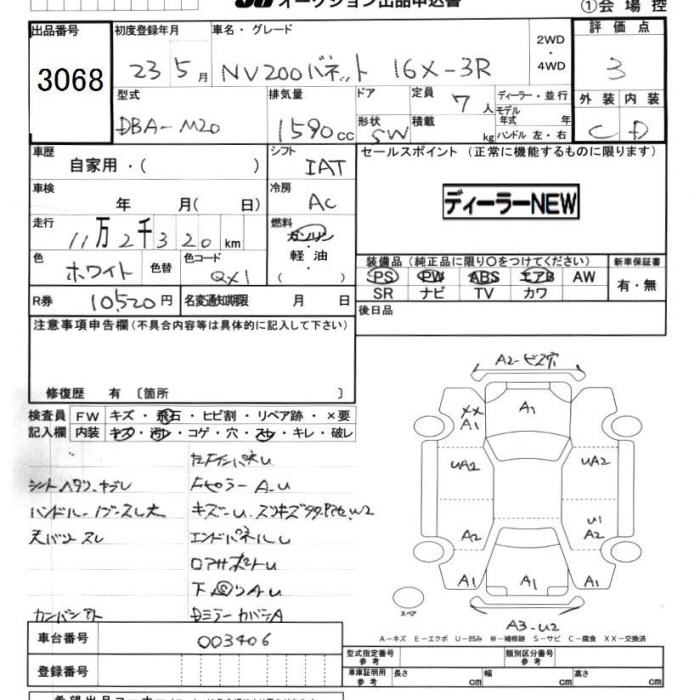 オークション出品申込書
①会場控
出品番号 初度登録年月 車名・グレード 2WD・4WD 評価点
3068 23 5月 NV200バネット 16X-3R 3
型式 排気量 ドア 定員 7人 ディーラー・並行 外装 内装
モデル年式 年
DBA-M20 1590cc 形状 SW 積載 kg ハンドル 左・右 C D
車歴 自家用・( ) シフト IAT セールスポイント (正常に機能するものに限ります)
車検 年 月( 日) 冷房 AC
ディーラーNEW
走行 11万2千320km 燃料 ガソリン・軽油・( )
色 ホワイト 色替 色コード QX1
装備品 (純正品に限り〇をつけてください) 新車保証書
PS PW ABS エアB AW 有・無
SR ナビ TV カワ
R券 10,520円 名変通知期限 月 日 後日品
注意事項申告欄(不具合内容等は具体的に記入して下さい)
修復歴 有 〔箇所 〕
検査員記入欄 FW キズ・飛石・ヒビ割・リペア跡・×要
内装 キズ・汚レ・コゲ・穴・スレ・キレ・破レ
A2-ビス穴
A1
XX
A1
UA2 UA2
U1
A2 A2
A1 A1 A1
スペア
A3-U2
シートヘタリ、ヤブレ
ハンドル-
天バリ スレ
エンドパネルU
ロアサポートU
下回りAU
DミラーカバーA
A-キズ E-エクボ U-凹み W-補修跡 S-サビ C-腐食 XX-交換済
車台番号 003406
登録番号
型式指定番号 参考 類別区分番号 参考
車庫証明用 参考 長さ cm 幅 cm 高さ cm
希望出品コーナー